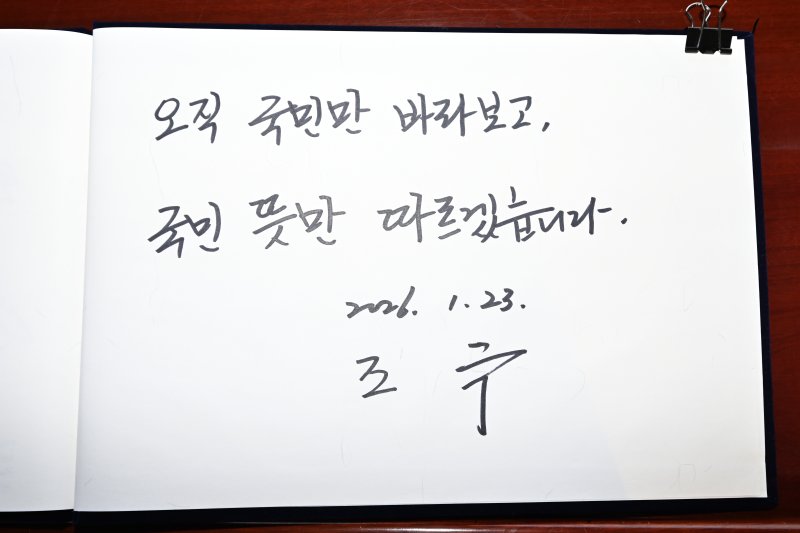 오직 국민만 바라보고,
국민 뜻만 따르겠습니다.
2026. 1. 23.
조 국